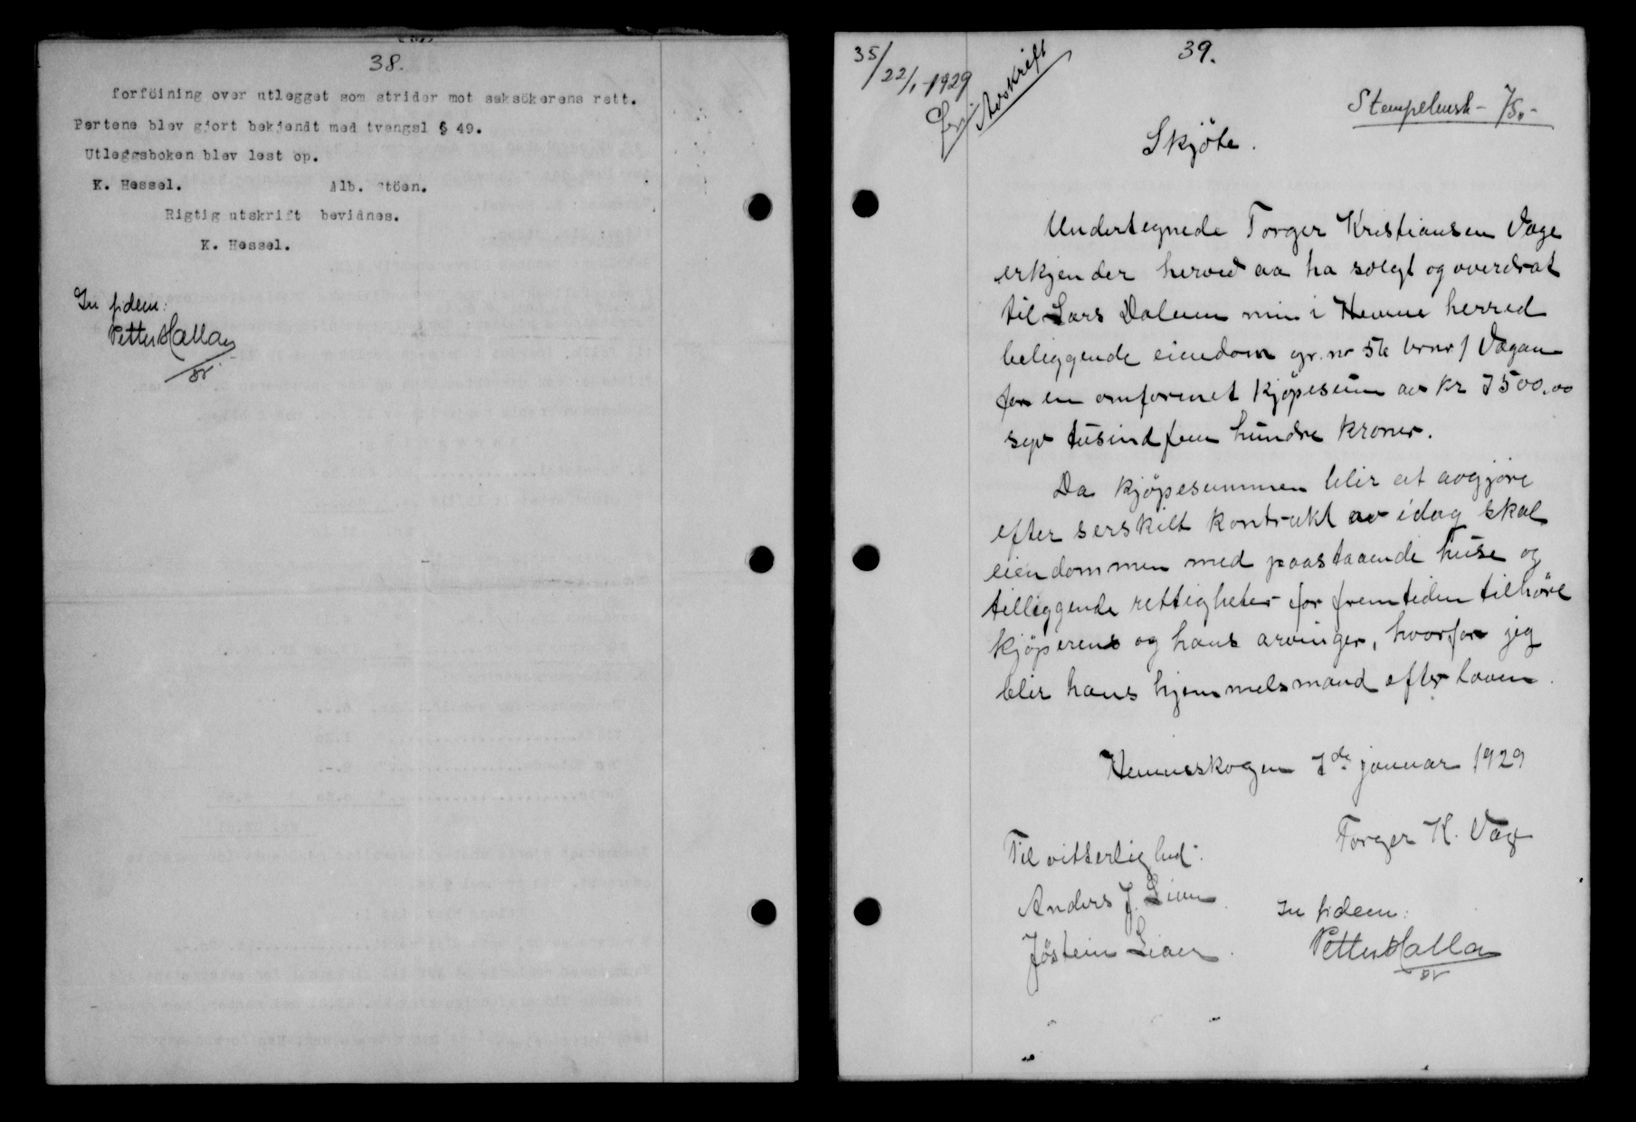 38.
forföining over utlegget som strider mot saksökerens rett.
Partene blev gjort bekjendt med tvangsl § 49.
Utleggsboken blev lest op.
K. Hessel. Alb. Stöen.
Rigtig utskrift bevidnes.
K. Hessel.
In fidem:
Petter Hallan
39.
35/22/1-1929
Avskrift
Stempelmrk - 75.-
Skjöte.
Undertegnede Torger Kristiansen Vage
erkjender herved aa ha solgt og overdrat
til Lars Dalum min i Hemne herred
beliggende eiendom gr. nr 56 brnr 1 Vagan
for en omforenet kjøpesum av kr 7500.00
syv tusind fem hundre kroner.
Da kjøpesummen blir at avgjøre
efter serskilt kontrakt av idag skal
eiendommen med paastaaende huse og
tilliggende rettigheter for fremtiden tilhøre
kjøperens og hans arvinger, hvorfor jeg
blir hans hjemmelsmand efter loven.
Hemneskogen 7de januar 1929
Torger K. Vag
Til vitterlighed:
Anders J. Lien
Jøstein Liaen
In fidem:
Petter Hallan